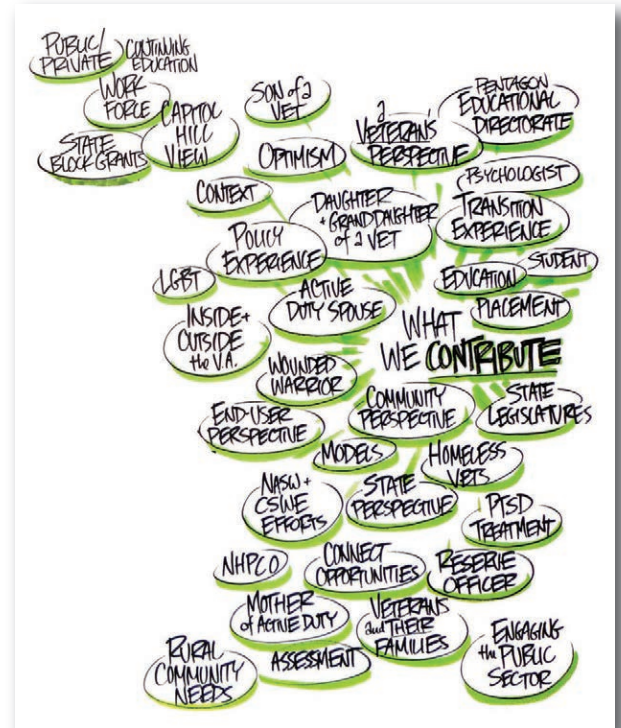 PUBLIC/
PRIVATE
CONTINUING
EDUCATION
WORK
FORCE
STATE
BLOCK GRANTS
CAPITOL
HILL
VIEW
SON of a
VET
OPTIMISM
a
VETERAN'S
PERSPECTIVE
PENTAGON
EDUCATIONAL
DIRECTORATE
PSYCHOLOGIST
CONTEXT
DAUGHTER
+ GRANDDAUGHTER
of a VET
TRANSITION
EXPERIENCE
POLICY
EXPERIENCE
STUDENT
EDUCATION
LGBT
ACTIVE
DUTY SPOUSE
PLACEMENT
INSIDE +
OUTSIDE
the V.A.
WHAT
WE CONTRIBUTE
WOUNDED
WARRIOR
COMMUNITY
PERSPECTIVE
STATE
LEGISLATURES
END-USER
PERSPECTIVE
MODELS
HOMELESS
VETS
NASW +
CSWE
EFFORTS
STATE
PERSPECTIVE
PTSD
TREATMENT
NHPCO
CONNECT
OPPORTUNITIES
RESERVE
OFFICER
MOTHER
of ACTIVE DUTY
VETERANS
and THEIR
FAMILIES
ENGAGING
the PUBLIC
SECTOR
RURAL
COMMUNITY
NEEDS
ASSESSMENT